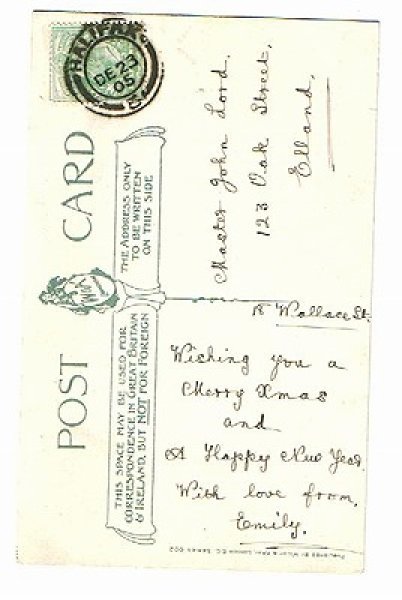 HALIFAX
DE 23
05
POST CARD
THE ADDRESS ONLY
TO BE WRITTEN
ON THIS SIDE
THIS SPACE MAY BE USED FOR
CORRESPONDENCE IN GREAT BRITAIN
& IRELAND, BUT NOT FOR FOREIGN
Master John Lord.
123 Oak Street,
Elland,
18 Wallace St.
Wishing you a
Merry Xmas
and
A Happy New Year.
With love from,
Emily.